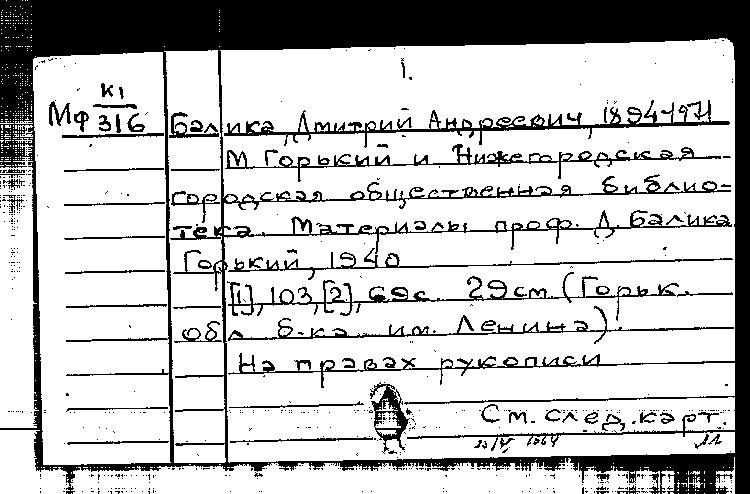 1.
Мф К1/316
Балика, Дмитрий Андреевич, 1894-1971
М. Горький и Нижегородская
городская общественная библио-
тека. Материалы проф. Д. Балика
Горький, 1940
[1], 103, [2], 69с. 29см (Горьк.
обл. б-ка им. Ленина).
На правах рукописи
См. след. карт.